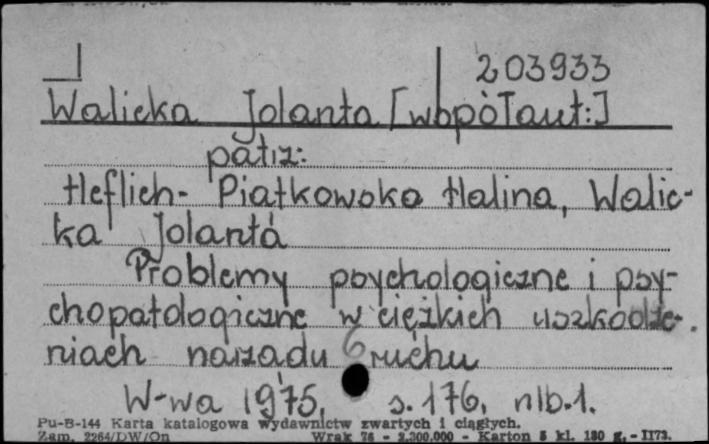 203933
Walicka Jolanta [współaut:]
patrz:
Heflich-Piątkowska Halina, Walic-
ka Jolanta
Problemy psychologiczne i psy-
chopatologiczne w ciężkich uszkodze-
niach narządu ruchu
W-wa 1975, s. 176, nlb. 1.
Pu-B-144 Karta katalogowa wydawnictw zwartych i ciągłych.
Zam. 2264/DW/On Wrak 76 - 2.300.000 - Karton 5 kl. 180 g. - 1173.